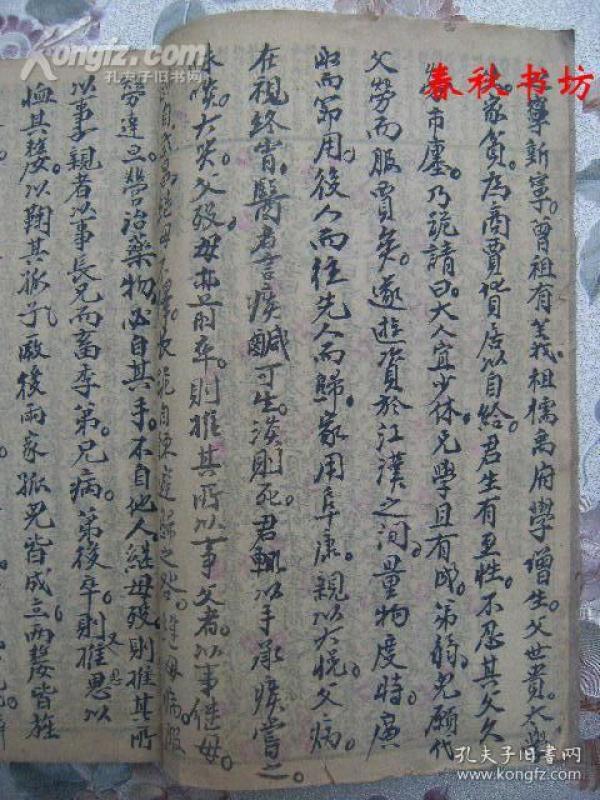 寧新寧。曾祖有義。祖檽。禹府學增生。父世貴。太學
家貧。為商賈。貨居以自給。君生有至性。不忍其父久
市廛。乃跪請曰。大人宜少休。兄學且有成。弟弱。兒願代
父勞而服賈矣。遂遊資於江漢之洞。量物度時。廉
取而節用。後人而往先人而歸。家用阜康。親以大悅。父病。
在視終宵。醫者言痰鹹可生。淡則死。君輒以手承痰嘗之。
淡。大哭。父歿。母亦前卒。則推其所以事父者。以事繼母。
勞達旦。營治藥物。必自其手。不自他人。繼母歿。則推其所
以事親者。以事長兄而畜季弟。兄病。弟後卒。則推恩以
又恩
恤其嫠。以鞠其孤。孔厥後。兩家孤兒皆成立。兩嫠皆旌
春秋书坊
Kongfz.com
孔夫子旧书网
孔夫子旧书网
www.kongfz.com